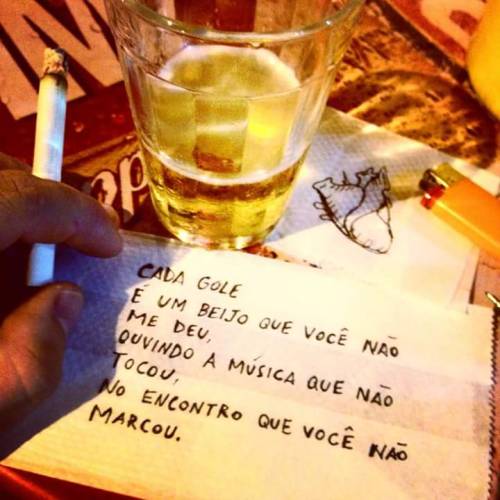 CADA GOLE
É UM BEIJO QUE VOCÊ NÃO
ME DEU,
OUVINDO A MÚSICA QUE NÃO
TOCOU,
NO ENCONTRO QUE VOCÊ NÃO
MARCOU.